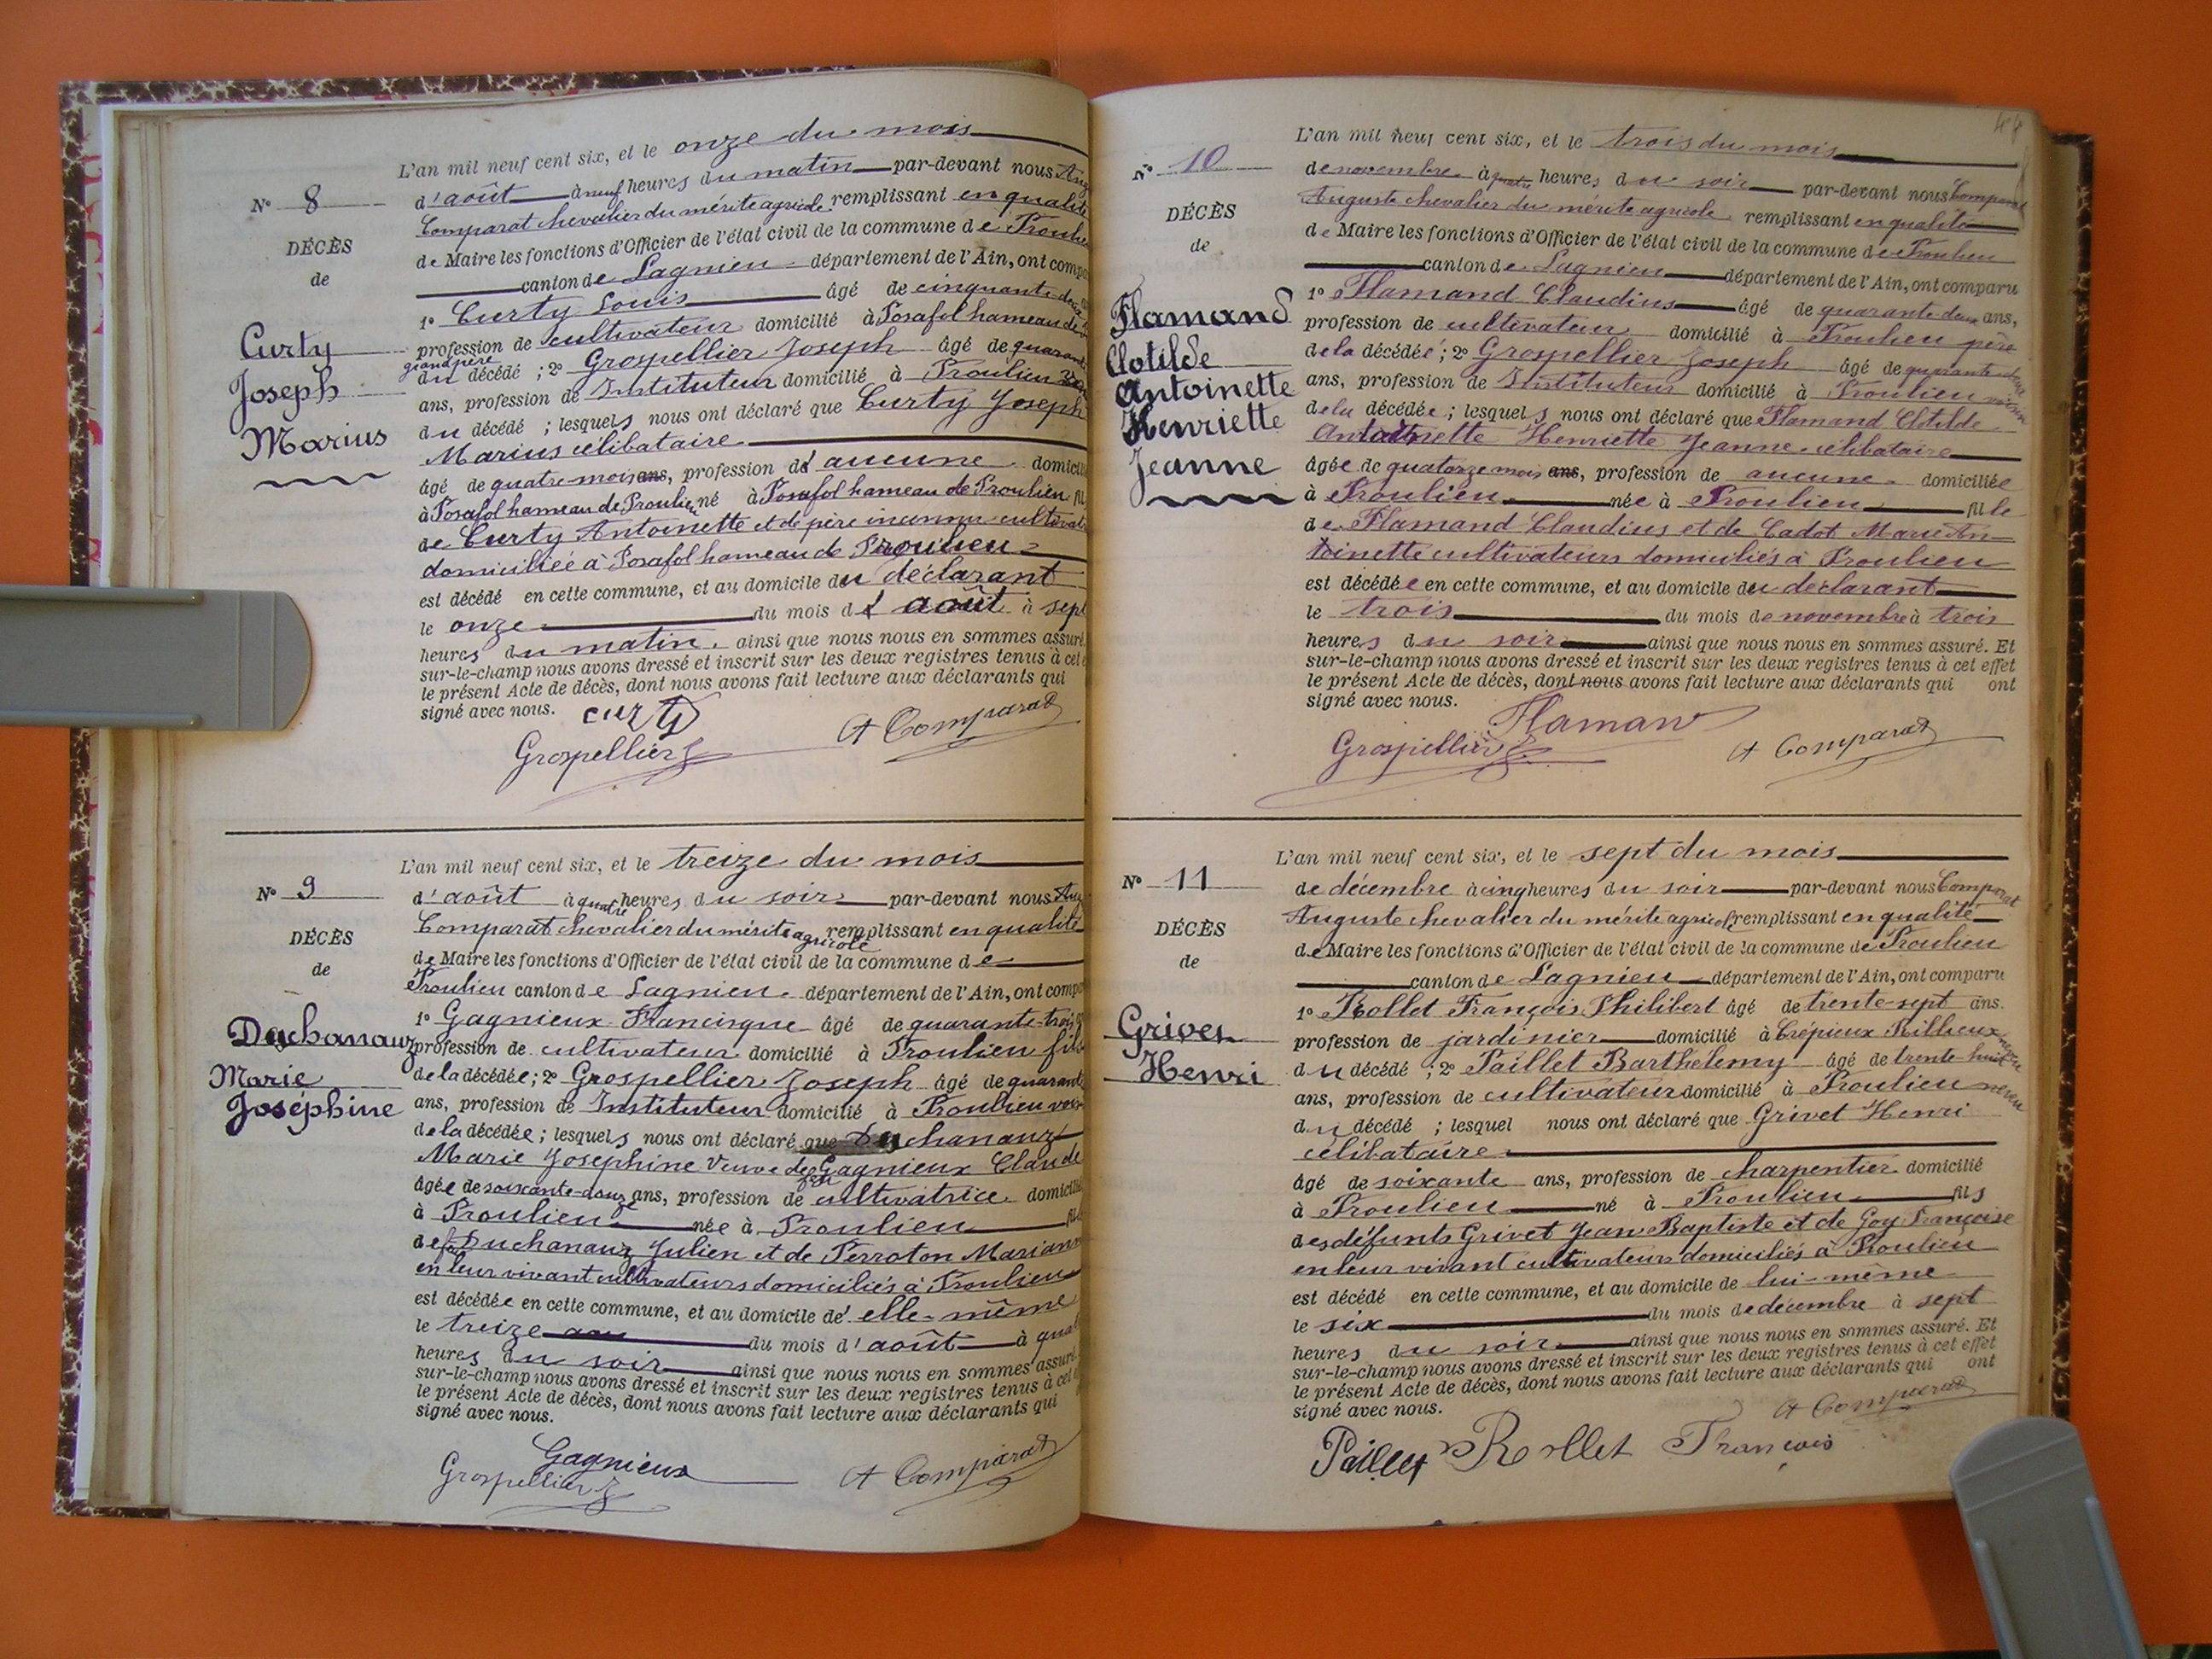 L'an mil neuf cent six, et le onze du mois
N° 8
d'août à neuf heures du matin par-devant nous
Comparat chevalier du mérite agricole remplissant en qualité
DÉCÈS
de Maire les fonctions d'Officier de l'état civil de la commune de
de
canton de Lagnieu département de l'Ain, ont
1° Curty Louis âgé de cinquante-deux
profession de cultivateur domicilié à Posafol hameau de
Curty
Joseph
Marius
grand père
du décédé ; 2° Grospellier Joseph âgé de
ans, profession de Instituteur domicilié à Proulieu
du décédé ; lesquels nous ont déclaré que Curty Joseph
Marius célibataire
âgé de quatre mois ans, profession d' aucune
à Posafol hameau de Proulieu né à Posafol hameau de Proulieu
de Curty Antoinette et de père inconnu
domiciliée à Posafol hameau de Proulieu
est décédé en cette commune, et au domicile du déclarant
le onze du mois d' août à sept
heures du matin, ainsi que nous nous en sommes assuré.
sur-le-champ nous avons dressé et inscrit sur les deux registres tenus à cet
le présent Acte de décès, dont nous avons fait lecture aux déclarants qui
signé avec nous.
Curty
Grospellier
A Comparat
L'an mil neuf cent six, et le treize du mois
N° 9
d'août à quatre heures du soir par-devant nous
Comparat chevalier du mérite agricole remplissant en qualité
DÉCÈS
de Maire les fonctions d'Officier de l'état civil de la commune de
de
Proulieu canton de Lagnieu département de l'Ain, ont
1° Gagnieux Francisque âgé de quarante-trois
Duchanauz
Marie
Joséphine
profession de cultivateur domicilié à Proulieu fils
de la décédée ; 2° Grospellier Joseph âgé de
ans, profession de Instituteur domicilié à Proulieu
de la décédée ; lesquels nous ont déclaré que Duchanauz
Marie Josephine Veuve de Gagnieux Claude
âgée de soixante-douze ans, profession de cultivatrice
à Proulieu née à Proulieu
de feu Duchanauz Julien et de Perroton
en leur vivant cultivateurs domiciliés à Proulieu
est décédée en cette commune, et au domicile d' elle-même
le treize du mois d'août à
heures du soir ainsi que nous nous en sommes assuré.
sur-le-champ nous avons dressé et inscrit sur les deux registres tenus à cet
le présent Acte de décès, dont nous avons fait lecture aux déclarants qui
signé avec nous.
Gagnieux
Grospellier
A Comparat
L'an mil neuf cent six, et le trois du mois
N° 10
de novembre à quatre heures du soir par-devant nous Comparat
Auguste chevalier du mérite agricole remplissant en qualité
DÉCÈS
de Maire les fonctions d'Officier de l'état civil de la commune de Proulieu
de
canton de Lagnieu département de l'Ain, ont comparu
1° Flamand Claudius âgé de quarante-deux ans,
Flamand
Clotilde
Antoinette
Henriette
Jeanne
profession de cultivateur domicilié à Proulieu père
de la décédée ; 2° Grospellier Joseph âgé de quarante-deux
ans, profession de Instituteur domicilié à Proulieu voisin
de la décédée ; lesquels nous ont déclaré que Flamand Clotilde
Antoinette Henriette Jeanne célibataire
âgée de quatorze mois ans, profession de aucune domiciliée
à Proulieu née à Proulieu fille
de Flamand Claudius et de Cadot Marie An-
toinette cultivateurs domiciliés à Proulieu
est décédée en cette commune, et au domicile du déclarant
le trois du mois de novembre à trois
heures du soir ainsi que nous nous en sommes assuré. Et
sur-le-champ nous avons dressé et inscrit sur les deux registres tenus à cet effet
le présent Acte de décès, dont nous avons fait lecture aux déclarants qui ont
signé avec nous.
Flaman
Grospellier
A Comparat
L'an mil neuf cent six, et le sept du mois
N° 11
de décembre à cinq heures du soir par-devant nous Comparat
Auguste chevalier du mérite agricole remplissant en qualité
DÉCÈS
de Maire les fonctions d'Officier de l'état civil de la commune de Proulieu
de
canton de Lagnieu département de l'Ain, ont comparu
1° Rollet François Philibert âgé de trente-sept ans.
Grivet
Henri
profession de jardinier domicilié à Crépieux Rillieux neveu
du décédé ; 2° Paillet Barthélemy âgé de trente-huit
ans, profession de cultivateur domicilié à Proulieu neveu
du décédé ; lesquel nous ont déclaré que Grivet Henri
célibataire
âgé de soixante ans, profession de charpentier domicilié
à Proulieu né à Proulieu fils
des défunts Grivet Jean Baptiste et de Goy Françoise
en leur vivant cultivateurs domiciliés à Proulieu
est décédé en cette commune, et au domicile de lui-même
le six du mois de décembre à sept
heures du soir ainsi que nous nous en sommes assuré. Et
sur-le-champ nous avons dressé et inscrit sur les deux registres tenus à cet effet
le présent Acte de décès, dont nous avons fait lecture aux déclarants qui ont
signé avec nous.
A Comparat
Paillet Rollet François